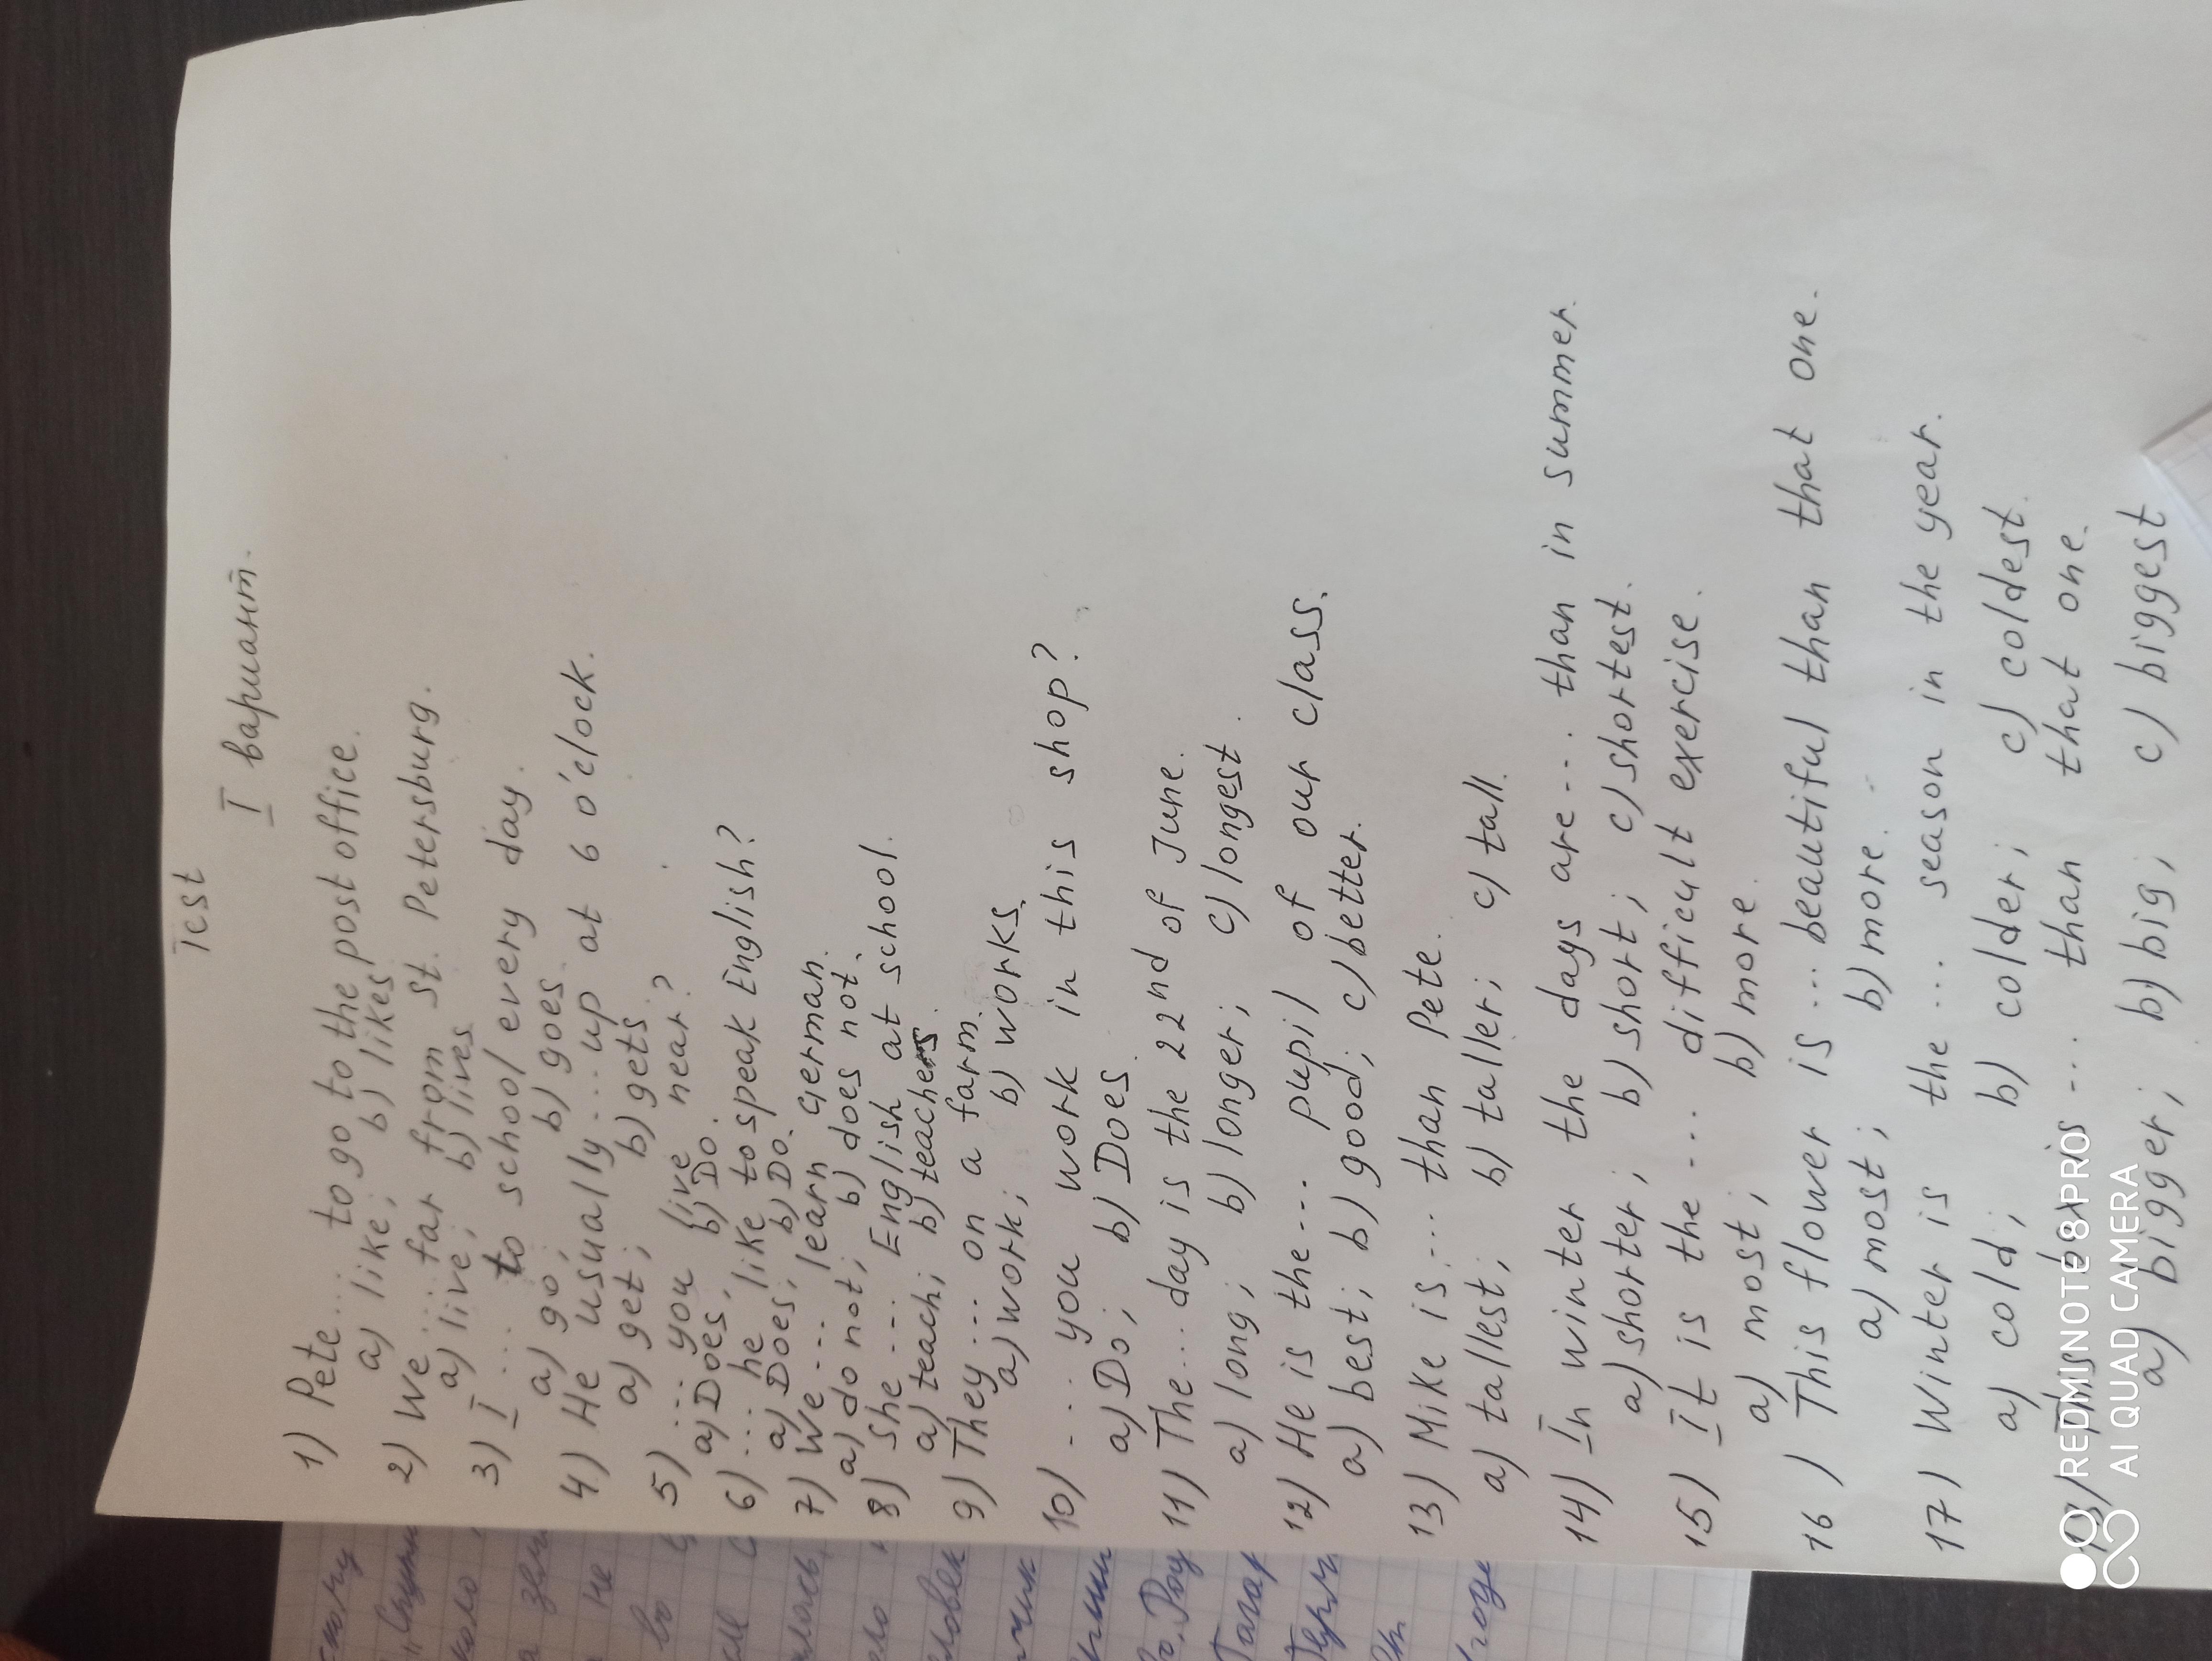 Test
I вариант.
1) Pete... to go to the post office.
a) like; b) likes
2) We ... far from St. Petersburg.
a) live; b) lives
3) I ... to school every day.
a) go; b) goes
4) He usually ... up at 6 o'clock.
a) get; b) gets
5) ... you live near?
a) Does; b) Do.
6) ... he like to speak English?
a) Does; b) Do.
7) We ... learn German.
a) do not; b) does not.
8) She ... English at school.
a) teach; b) teachers.
9) They ... on a farm.
a) work; b) works.
10) ... you work in this shop?
a) Do; b) Does.
11) The ... day is the 22nd of June.
a) long; b) longer; c) longest.
12) He is the ... pupil of our class.
a) best; b) good; c) better.
13) Mike is ... than Pete.
a) tallest; b) taller; c) tall.
14) In winter the days are ... than in summer.
a) shorter; b) short; c) shortest.
15) It is the ... difficult exercise.
a) most; b) more.
16) This flower is ... beautiful than that one.
a) most; b) more.
17) Winter is the ... season in the year.
a) cold; b) colder; c) coldest.
18) This is ... than that one.
a) bigger; b) big; c) biggest
REDMI NOTE 8 PRO
AI QUAD CAMERA